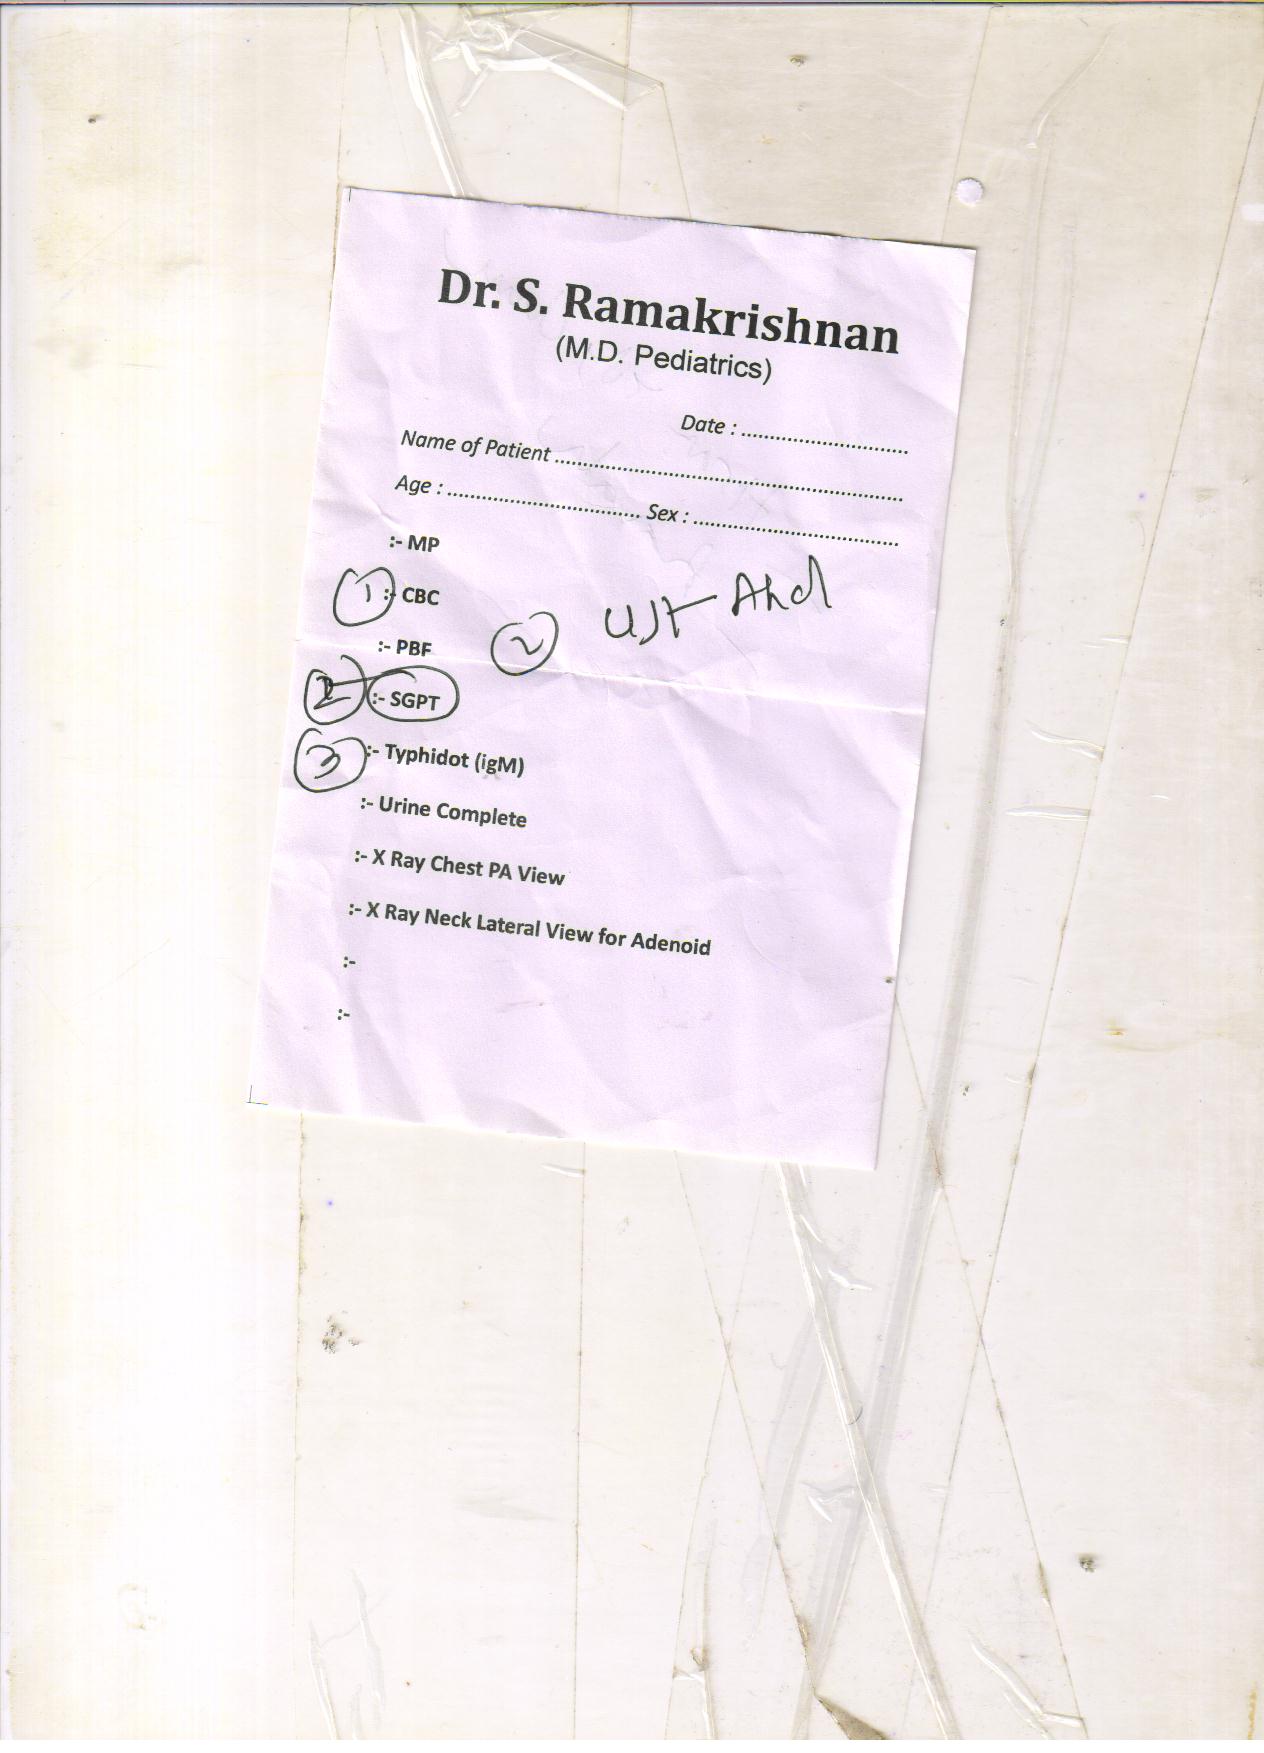 Dr. S. Ramakrishnan
(M.D. Pediatrics)
Date : ............................
Name of Patient ...........................................................
Age : ................................. Sex : ...................................
:- MP
1 :- CBC
2
:- PBF
2 :- SGPT
3 :- Typhidot (igM)
:- Urine Complete
:- X Ray Chest PA View
:- X Ray Neck Lateral View for Adenoid
:-
:-